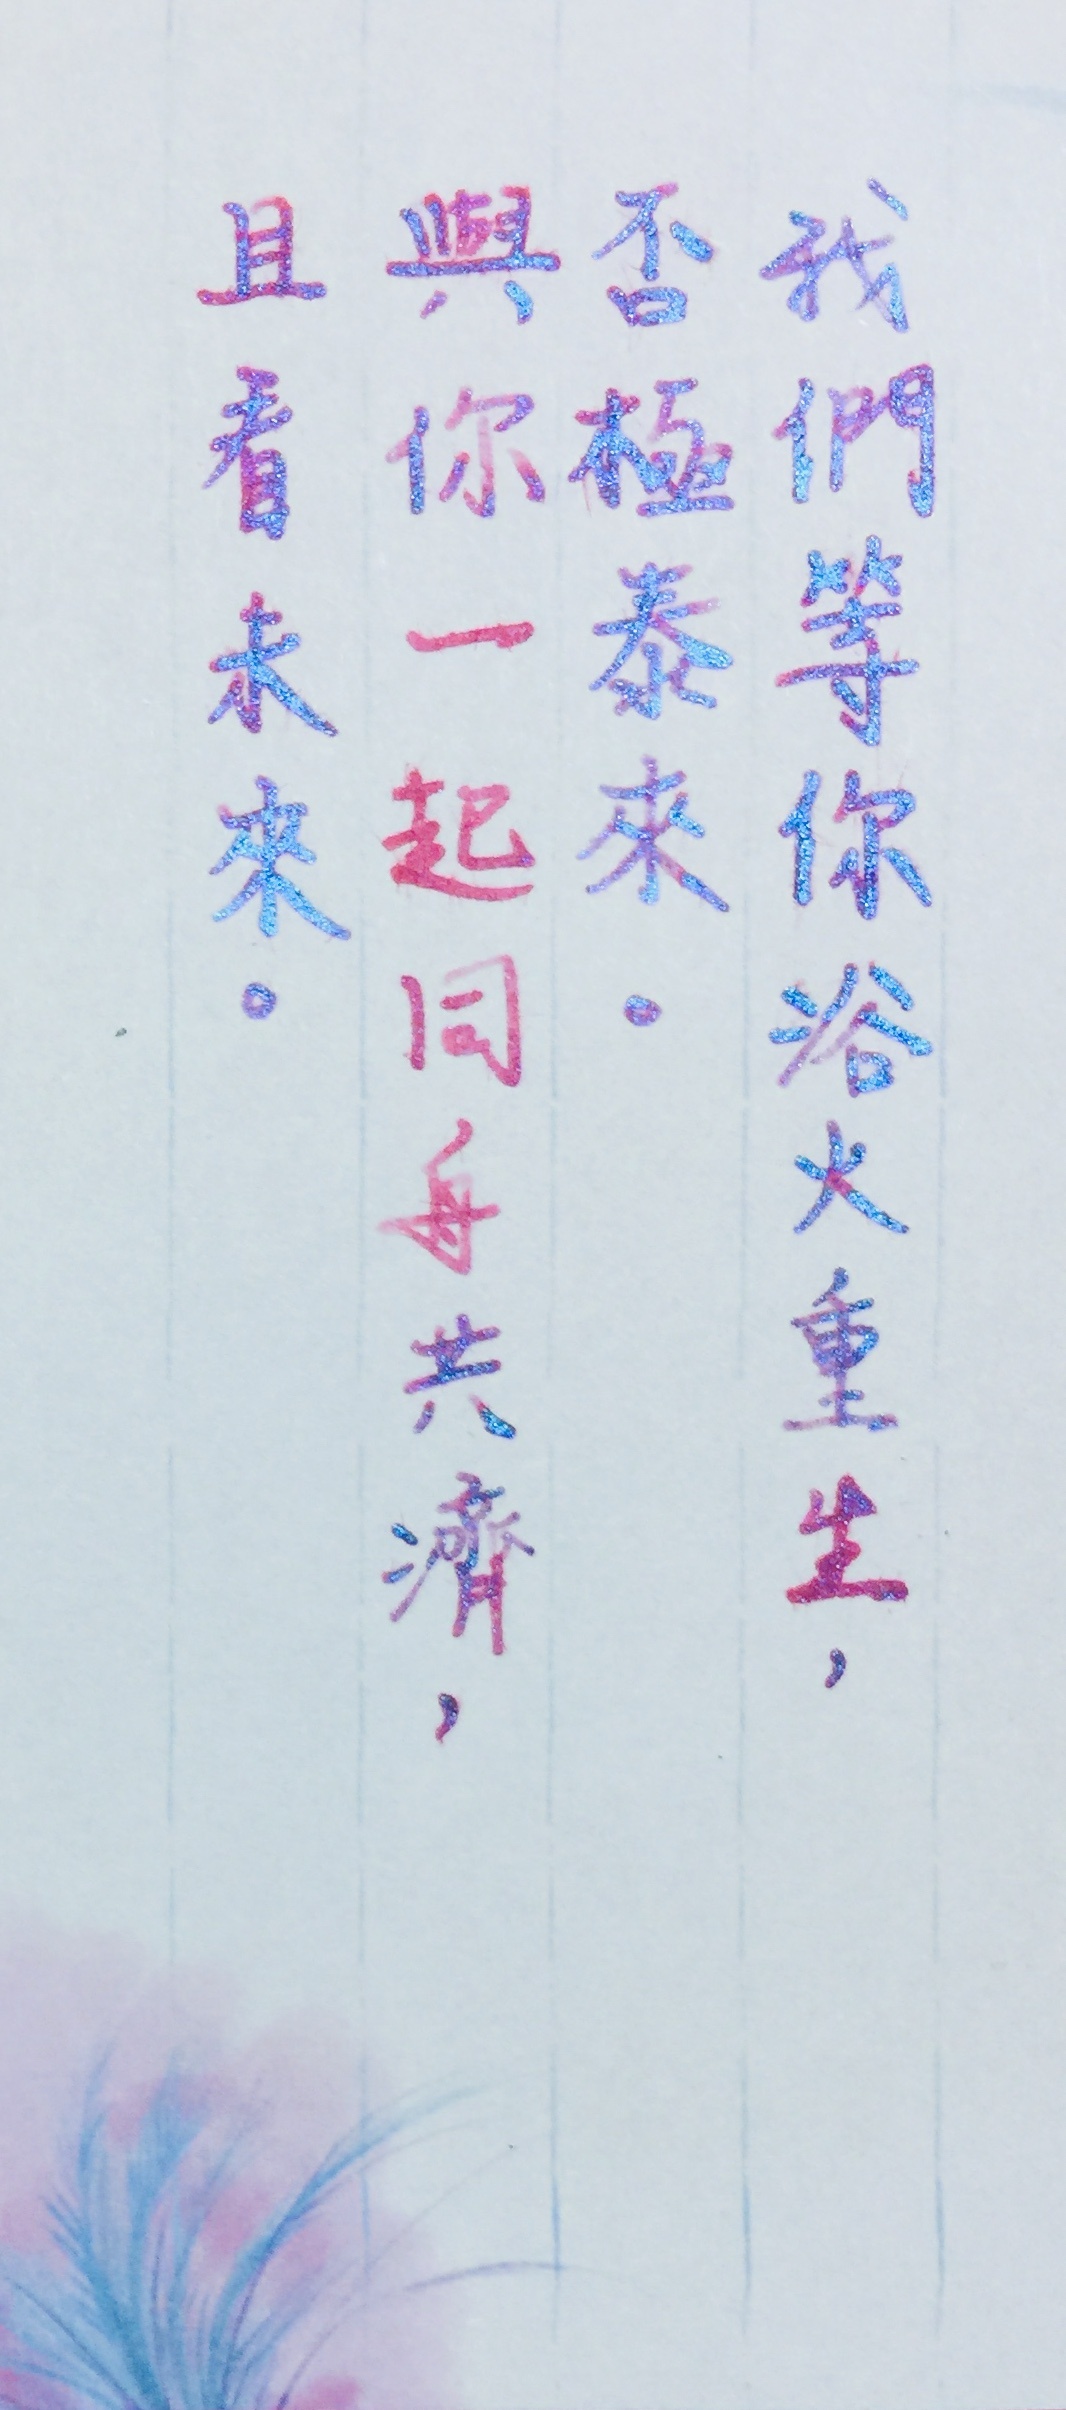 我們等你浴火重生，
否極泰來。
與你一起同舟共濟，
且看未來。